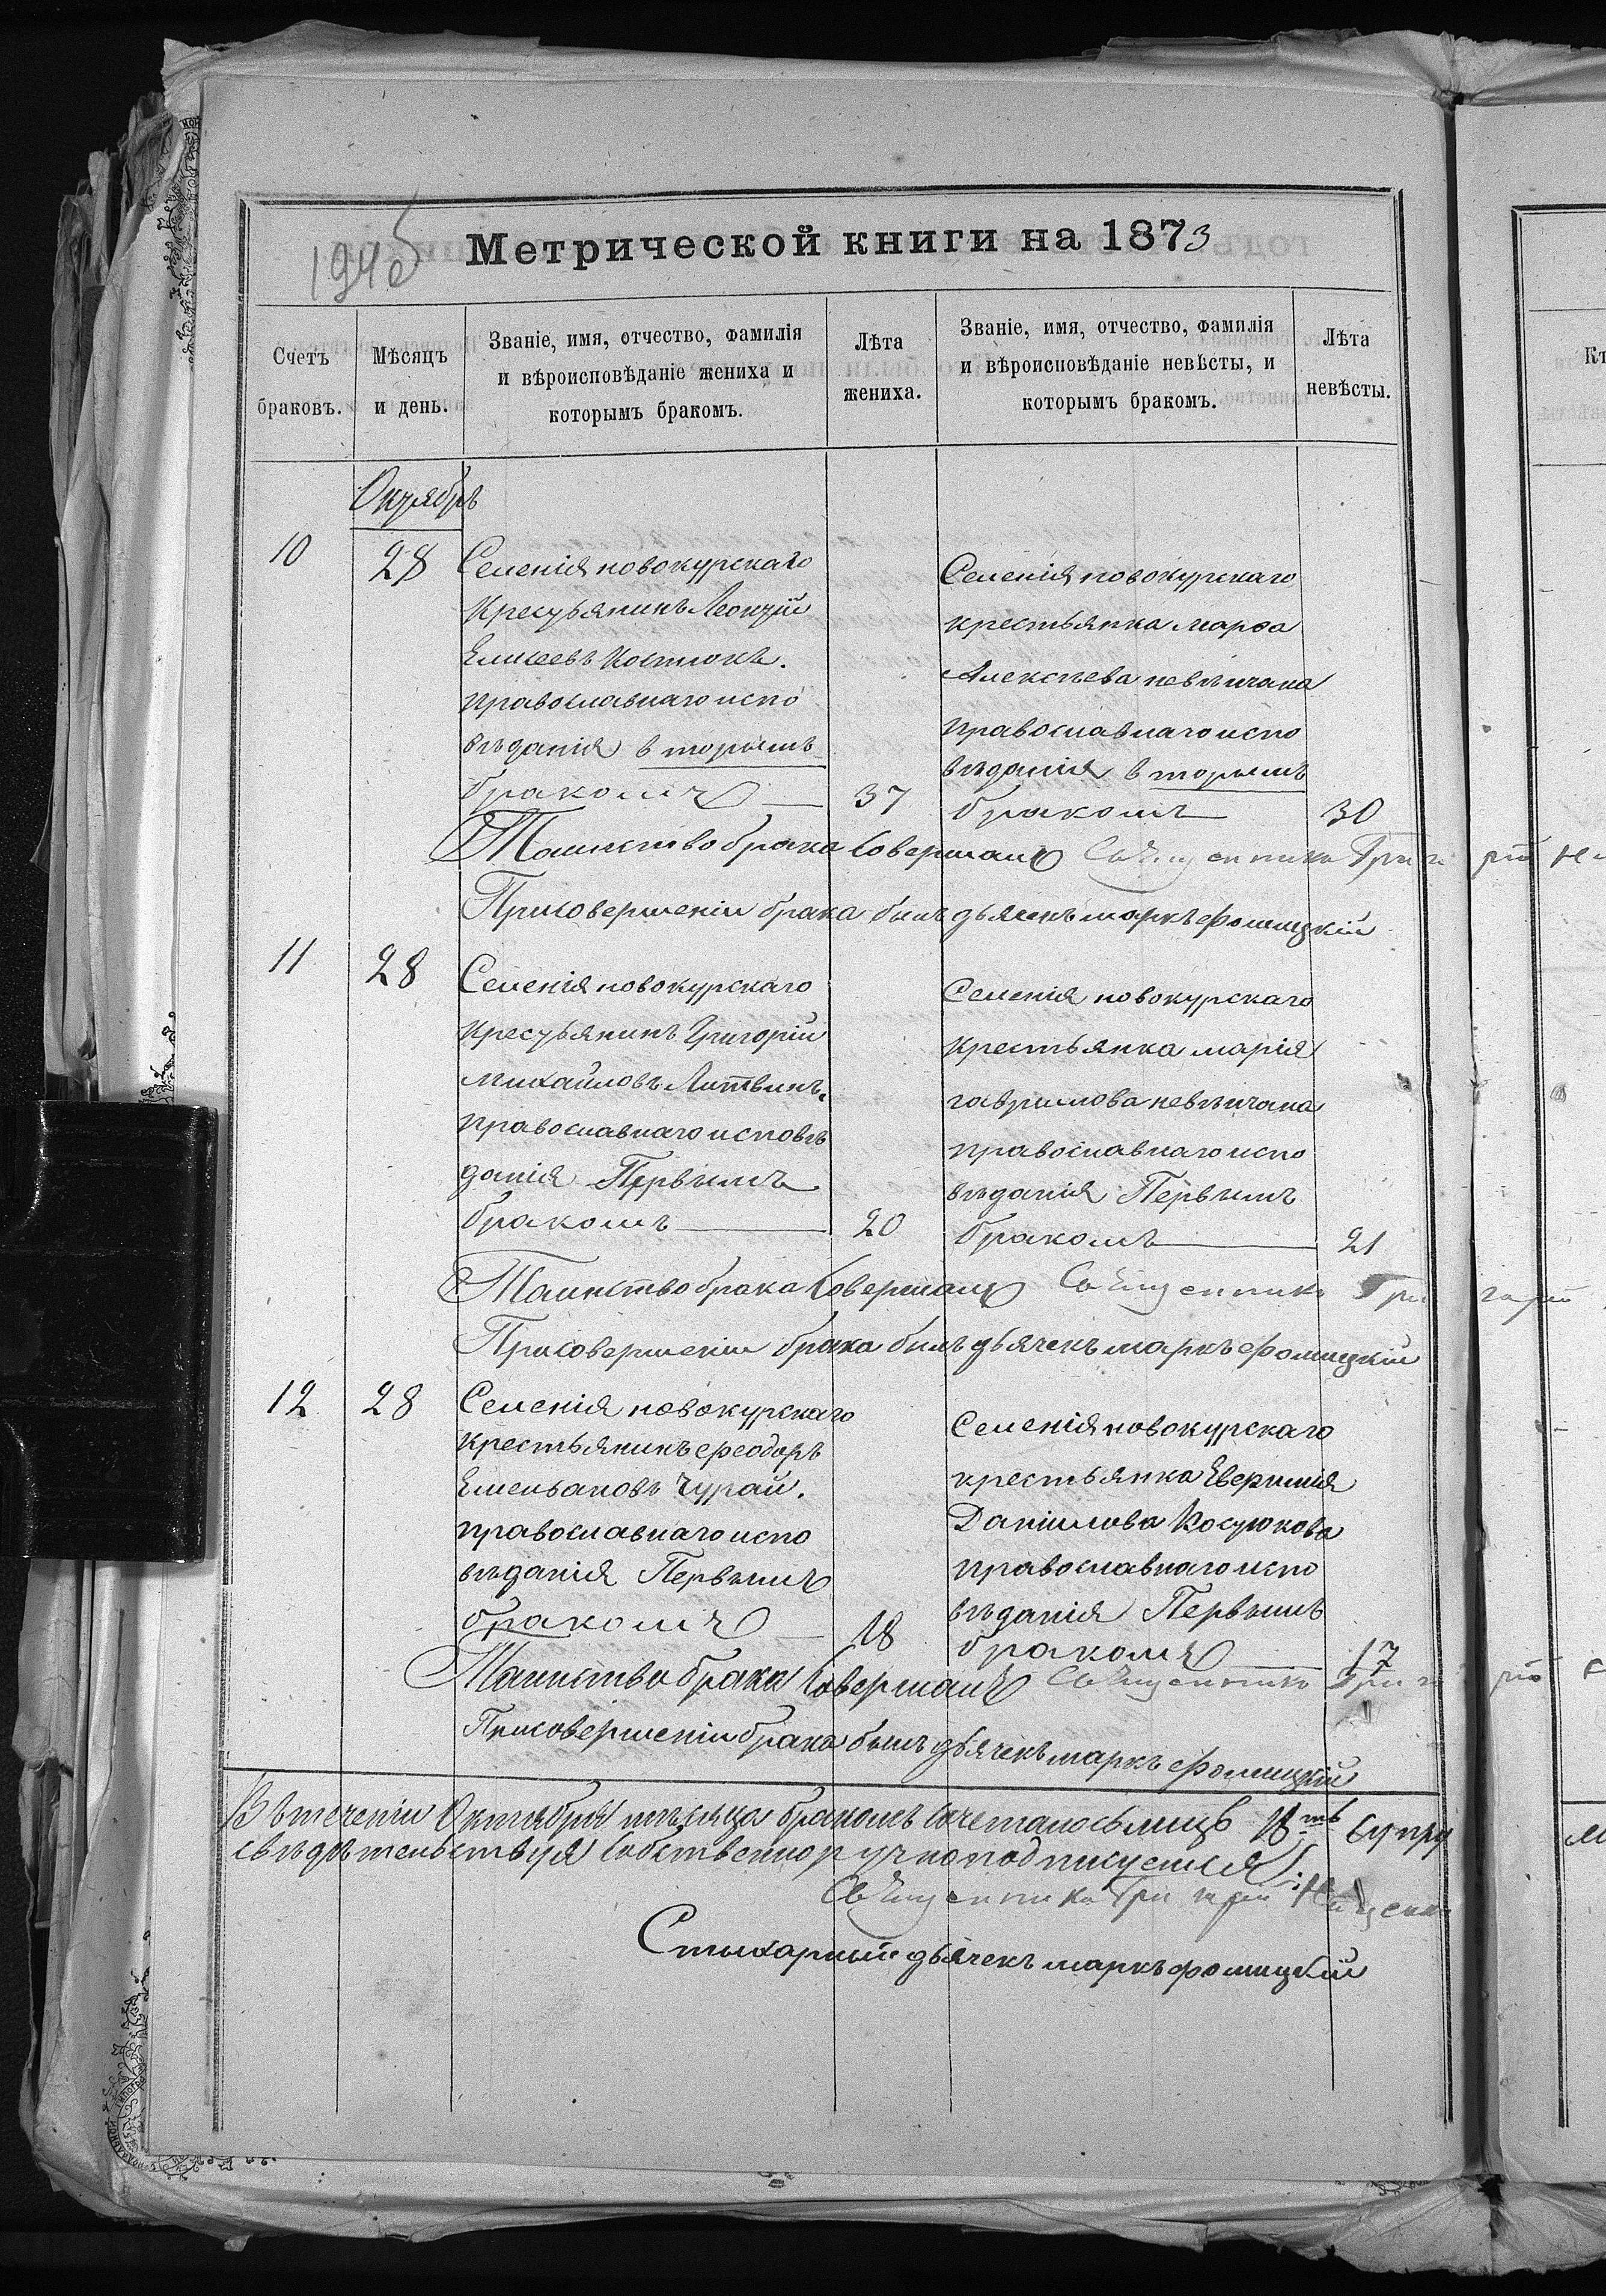 194об
Метрической книги на 1873
Счетъ браковъ.
Мѣсяцъ и день.
Званіе, имя, отчество, фамилія и вѣроисповѣданіе жениха и которымъ бракомъ.
Лѣта жениха.
Званіе, имя, отчество, фамилія и вѣроисповѣданіе невѣсты, и которымъ бракомъ.
Лѣта невѣсты.
Октябрь
10
28
Селенія новокурскаго
Крестьянинъ Леонтій
Елисеевъ Костюкъ.
православнаго испо
вѣданія вторымъ
бракомъ
37
Селенія новокурскаго
крестьянка марфа
Алексѣева невѣичана
православнаго испо
вѣданія вторымъ
бракомъ
30
Таинство брака Совершалъ Священникъ Григо рій
При совершеніи брака былъ дьячекъ маркъ фомицкій
11
28
Селенія новокурскаго
Крестьянинъ Григорій
михаиловъ Литвинъ.
православнаго исповѣ
данія Первымъ
бракомъ
20
Селенія новокурскаго
Крестьянка марія
гаврилова невѣичана
православнаго испо
вѣданія Первымъ
бракомъ
21
Таинство брака Совершалъ Священникъ Гри горій
При совершеніи брака былъ дьячекъ маркъ фомицкій
12
28
Селенія новокурскаго
крестьянинъ феодоръ
Емельановъ Чурай.
православнаго испо
вѣданія Первымъ
бракомъ
18
Селенія новокурскаго
крестьянка Евфимія
Даніилова Костюкова
православнаго испо
вѣданія Первымъ
бракомъ
17
Таинство брака Совершалъ Священникъ Григо рій
При совершеніи брака былъ дьячекъ маркъ фомицкій
Въ теченіи Октября мѣсяца бракомъ сочеталось лицъ супру
свѣдѣтельствуя собственноручно подписуемся:
Священникъ Григорій
Стихарный дьячекъ маркъ фомицкій